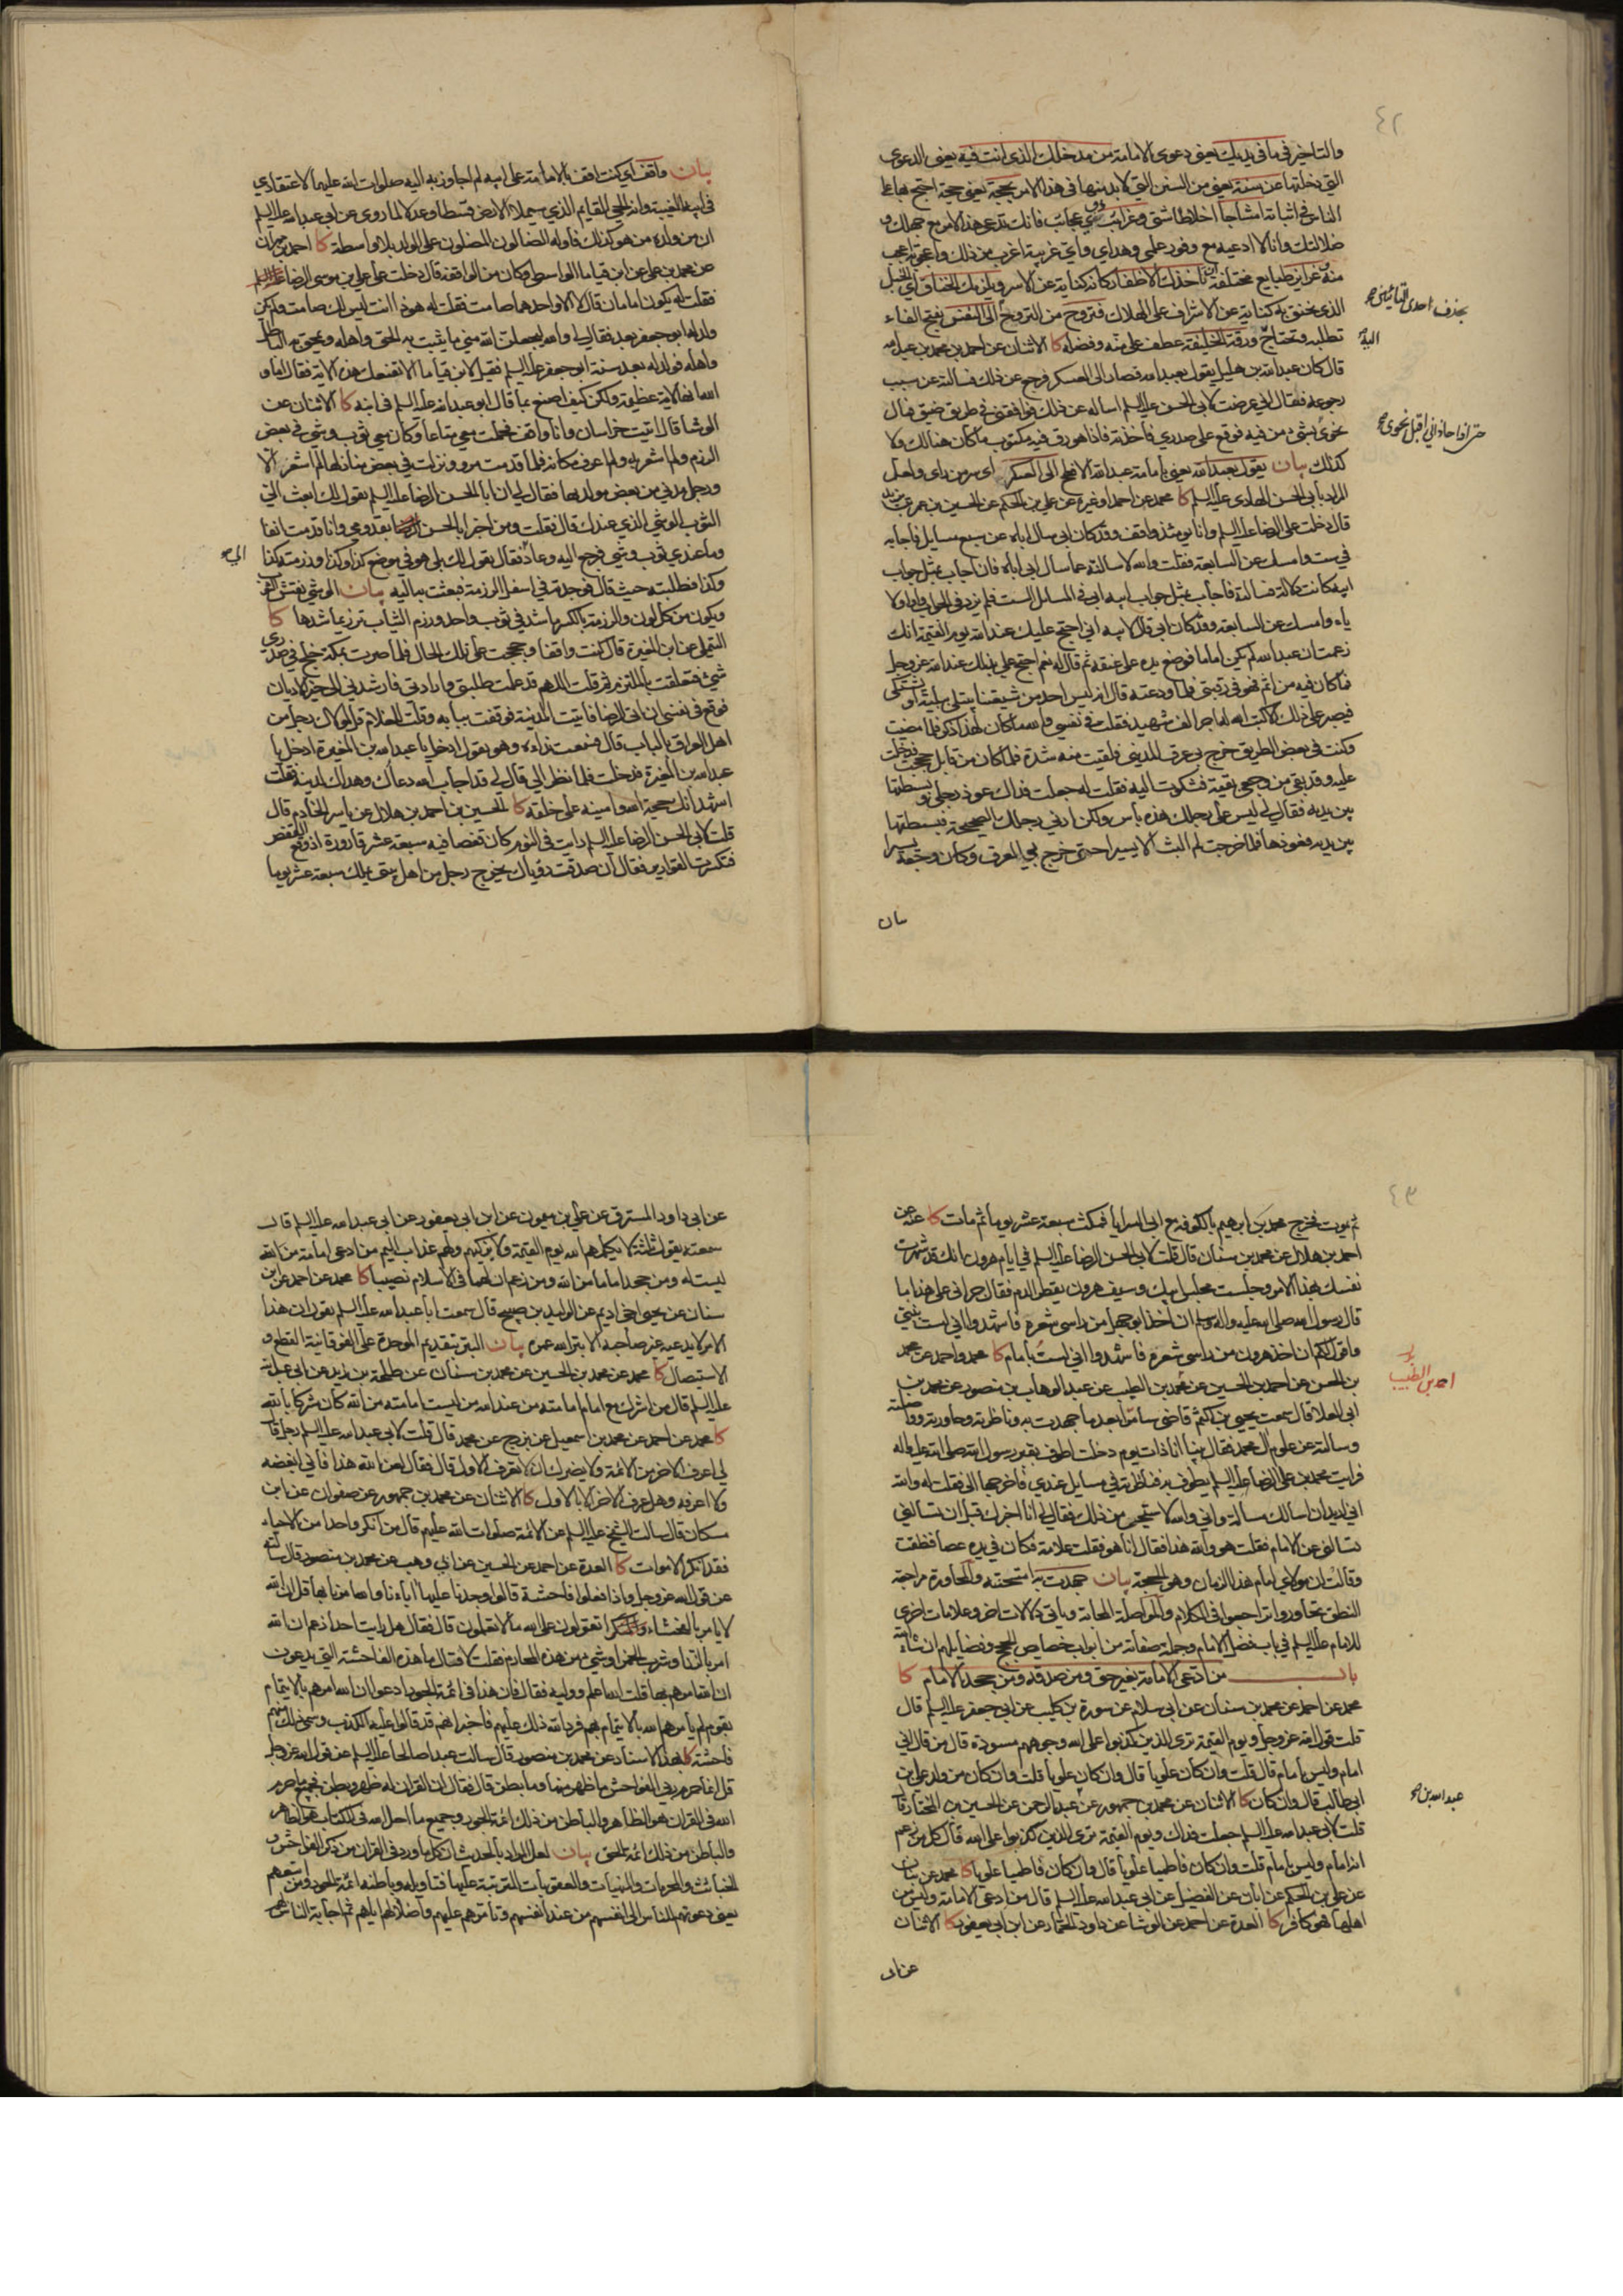 ٤٢
والتاخير في ما في يديك يعني دعوى الامامة من مدخلك الذي انت فيه يعني الدعوى
التي دخلتها عن سنة يعني من السنن التي لا بد منها في هذا الامر بحجة يعني حجة احتج بها على
الناس في اثباته امشاجا اخلاطا شتى وغرائب اي عجائب فانك تدعي هذا الامر مع جهلك و
ضلالتك وانا لا ادعيه مع وفور علمي وهداي واي غريبة اغرب من ذلك واعجوبة اعجب
منه وغرايز طبايع مختلفة تاخذك الاظفار كانه كناية عن الاسر ويلزمك الخناق اي الحبل
الذي يخنق به كناية عن الاشراف على الهلاك فتروح من الترويح الى النفس بفتح الفاء
تطلبه وتحتاج ورقة الخليفة عطف على منه وفضله كا الاثنان عن احمد بن محمد بن عبد الله
قال كان عبد الله بن هليل يقول بعبد الله فصار الى العسكر فرجع عن ذلك فسالته عن سبب
رجوعه فقال اني عرضت لابي الحسن عليه السلم اساله عن ذلك فوافقني في طريق ضيق فمال
نحوي بشيء من فيه فوقع على صدري فاخذته فاذا هو رق فيه مكتوب ما كان هنالك ولا
كذلك بيان يقول بعبد الله يعني بامامة عبد الله الافطح الى العسكر اي سر من راى ولعل
المراد بابي الحسن الهادي عليه السلم كا محمد عن احمد او غيره عن علي بن الحكم عن الحسين بن عمر بن يزيد
قال دخلت على الرضا عليه السلم وانا يومئذ واقف وقد كان ابي سال اباه عن سبع مسايل فاجابه
في ست وامسك عن السابعة فقلت والله لاسالنه عما سال ابي اباه فان اجاب بمثل جواب
ابيه كانت دلالة فسالته فاجاب بمثل جواب ابيه ابي في المسايل الست فلم يزد في الجواب واوا ولا
ياء وامسك عن السابعة وقد كان ابي قال لابيه اني احتج عليك عند الله يوم القيمة انك
زعمت ان عبد الله لم يكن اماما فوضع يده على عنقه ثم قال له نعم احتج علي بذلك عند الله عز وجل
فما كان فيه من اثم فهو في رقبتي فلما ودعته قال انه ليس احد من شيعتنا يبتلى ببلية او يشتكي
فيصبر على ذلك الا كتب الله له اجر الف شهيد فقلت في نفسي والله ما كان لهذا ذكر فلما مضيت
وكنت في بعض الطريق خرج بي عرق المديني فلقيت منه شدة فلما كان من قابل حججت فدخلت
عليه وقد بقي من وجعي بقية فشكوت اليه فقلت له جعلت فداك عوذ رجلي وبسطتها
بين يديه فقال لي ليس على رجلك هذه باس ولكن ارني رجلك الصحيحة فبسطتها
بين يديه فعوذها فلما خرجت لم البث الا يسيرا حتى خرج بي العرق وكان وجعه يسيرا
بحذف احدى التائين
اليه
بيان
بيان واقف اي كنت اقف بالامامة على ابيه لم اجاوز به اليه صلوات الله عليهما لاعتقادي
في ابيه الغيبة وانه الحي القايم الذي سيملا الارض قسطا وعدلا لما روي عن ابي عبد الله عليه السلم
ان من ولده من هو كذلك فاوله الضالون المضلون على الولد بلا واسطة كا احمد بن مهران
عن محمد بن علي عن ابن قياما الواسطي وكان من الواقفة قال دخلت على علي بن موسى الرضا عليه السلم
فقلت له يكون امامان قال لا الا واحدهما صامت فقلت له هو ذا انت ليس لك صامت ولم يكن
ولد له ابو جعفر بعد فقال لي والله ليجعلن الله مني ما يثبت به الحق واهله ويمحق به الباطل
واهله فولد له بعد سنة ابو جعفر عليه السلم فقيل لابن قياما الا تقنعك هذه الاية فقال اما و
الله انها لاية عظيمة ولكن كيف اصنع بما قال ابو عبد الله عليه السلم في ابنه كا الاثنان عن
الوشا قال اتيت خراسان وانا واقف فحملت معي متاعا وكان معي ثوب وشي في بعض
الرزم ولم اشعر به ولم اعرف مكانه فلما قدمت مرو ونزلت في بعض منازلها لم اشعر الا
ورجل مدني من بعض مولديها فقال لي ان ابا الحسن الرضا عليه السلم يقول لك ابعث الي
الثوب الوشي الذي عندك قال فقلت ومن اخبر ابا الحسن بقدومي وانا قدمت انفا
وما عندي ثوب وشي فرجع اليه وعاد فقال يقول لك بلى هو في موضع كذا وكذا ورزمته كذا
وكذا فطلبته حيث قال فوجدته في اسفل الرزمة فبعثت به اليه بيان الوشي نقش الثوب
ويكون من كل لون والرزمة بالكسر ما شد في ثوب واحد ورزم الثياب ترزيما شدها كا
التيملي عن ابن المغيرة قال كنت واقفا وحججت على تلك الحال فلما صرت بمكة خلج في صدري
شيء فتعلقت بالملتزم ثم قلت اللهم قد علمت طلبتي وارادتي فارشدني الى خير الاديان
فوقع في نفسي ان اتي الرضا فاتيت المدينة فوقفت ببابه وقلت للغلام قل لمولاك رجل من
اهل العراق بالباب قال فسمعت نداءه وهو يقول ادخل يا عبد الله بن المغيرة ادخل يا
عبد الله بن المغيرة فدخلت فلما نظر الي قال لي قد اجاب الله دعاك وهداك لدينه فقلت
اشهد انك حجة الله وامينه على خلقه كا الحسين بن احمد بن هلال عن ياسر الخادم قال
قلت لابي الحسن الرضا عليه السلم رايت في النوم كان قفصا فيه سبعة عشر قارورة اذ وقع القفص
فتكسرت القوارير فقال ان صدقت رؤياك يخرج رجل من اهل بيتي يملك سبعة عشر يوما
٤٣
ثم يموت فخرج محمد بن ابرهيم بالكوفة مع ابي السرايا فمكث سبعة عشر يوما ثم مات كا عنه عن
احمد بن هلال عن محمد بن سنان قال قلت لابي الحسن الرضا عليه السلم في ايام هرون انك قد شهرت
نفسك بهذا الامر وجلست مجلس ابيك وسيف هرون يقطر الدم فقال جراني على هذا ما
قال رسول الله صلى الله عليه واله وسلم ان اخذ ابو جهل من راسي شعرة فاشهدوا اني لست بنبي
وانا اقول لكم ان اخذ هرون من راسي شعرة فاشهدوا اني لست بامام كا محمد واحمد عن محمد
بن الحسن عن احمد بن الحسين عن محمد بن الطيب عن عبد الوهاب بن منصور عن محمد بن
ابي العلا قال سمعت يحيى بن اكثم قاضي سامرا بعد ما جهدت به وناظرته وحاورته وواصلته
وسالته عن علوم آل محمد فقال بينا انا ذات يوم دخلت اطوف بقبر رسول الله صلى الله عليه واله
فرايت محمد بن علي الرضا عليه السلم يطوف به فناظرته في مسايل عندي فاخرجها الي فقلت له والله
اني اريد ان اسالك مسالة واني والله لاستحيي من ذلك فقال لي انا اخبرك قبل ان تسالني
تسالني عن الامام فقلت هو والله هذا فقال انا هو فقلت علامة فكان في يده عصا فنطقت
وقالت ان مولاي امام هذا الزمان وهو الحجة بيان جهدت به امتحنته والمحاورة مراجعة
النطق تحاوروا تراجعوا في الكلام والمواصلة المحابة وياتي دلالات اخر وعلامات اخرى
للامام عليه السلم في باب فضل الامام وجملة صفاته من ابواب خصايص الحجج وفضايلهم ان شاء الله
باب من ادعى الامامة بغير حق ومن صدقه ومن جحد الامام كا
محمد عن احمد عن محمد بن سنان عن ابي سلام عن سورة بن كليب عن ابي جعفر عليه السلم قال
قلت قول الله عز وجل ويوم القيمة ترى الذين كذبوا على الله وجوههم مسودة قال من قال اني
امام وليس بامام قال قلت وان كان علويا قال وان كان علويا قلت وان كان من ولد علي بن
ابي طالب قال وان كان كا الاثنان عن محمد بن جمهور عن عبد الرحمن عن الحسين بن المختار قال
قلت لابي عبد الله عليه السلم جعلت فداك ويوم القيمة ترى الذين كذبوا على الله قال كل من زعم
انه امام وليس بامام قلت وان كان فاطميا علويا قال وان كان فاطميا علويا كا محمد عن بنان
عن علي بن الحكم عن ابان عن الفضيل عن ابي عبد الله عليه السلم قال من ادعى الامامة وليس من
اهلها فهو كافر كا العدة عن احمد عن الوشا عن داود الحمار عن ابن ابي يعفور كا الاثنان
عبد الله بن
عن ابي داود المسترق عن علي بن ميمون عن ابن ابي يعفور عن ابي عبد الله عليه السلم قال
سمعته يقول ثلثة لا يكلمهم الله يوم القيمة ولا يزكيهم ولهم عذاب اليم من ادعى امامة من الله
ليست له ومن جحد اماما من الله ومن زعم ان لهما في الاسلام نصيبا كا محمد عن احمد عن ابن
سنان عن يحيى اخي اديم عن الوليد بن صبيح قال سمعت ابا عبد الله عليه السلم يقول ان هذا
الامر لا يدعيه غير صاحبه الا بتر الله عمره بيان البتر بتقديم الموحدة على الفوقانية القطع و
الاستيصال كا محمد عن محمد بن الحسين عن محمد بن سنان عن طلحة بن زيد عن ابي عبد الله
عليه السلم قال من اشرك مع امام امامته من عند الله من ليست امامته من الله كان مشركا بالله
كا محمد عن احمد عن محمد بن اسمعيل عن بزرج عن محمد قال قلت لابي عبد الله عليه السلم رجل قال
لي اعرف الاخر من الائمة ولا يضرك ان لا تعرف الاول قال فقال لعن الله هذا فاني ابغضه
ولا اعرفه وهل عرف الاخر الا بالاول كا الاثنان عن محمد بن جمهور عن صفوان عن ابن
مسكان قال سالت الشيخ عليه السلم عن الائمة صلوات الله عليهم قال من انكر واحدا من الاحياء
فقد انكر الاموات كا العدة عن احمد عن الحسين عن ابي وهب عن محمد بن منصور قال سالته
عن قول الله عز وجل واذا فعلوا فاحشة قالوا وجدنا عليها اباءنا والله امرنا بها قل ان الله
لا يامر بالفحشاء اتقولون على الله ما لا تعلمون قال فقال هل رايت احدا زعم ان الله
امر بالزنا وشرب الخمر او شيء من هذه المحارم فقلت لا فقال ما هذه الفاحشة التي يدعون
ان الله امرهم بها قلت الله اعلم ووليه فقال فان هذا في ائمة الجور ادعوا ان الله امرهم بالايتمام
بقوم لم يامرهم الله بالايتمام بهم فرد الله ذلك عليهم فاخبر انهم قد قالوا عليه الكذب وسمى ذلك منهم
فاحشة كا بهذا الاسناد عن محمد بن منصور قال سالت عبدا صالحا عليه السلم عن قول الله عز وجل
قل انما حرم ربي الفواحش ما ظهر منها وما بطن قال فقال ان القران له ظهر وبطن فجميع ما حرم
الله في القران هو الظاهر والباطن من ذلك ائمة الجور وجميع ما احل الله في الكتاب هو الظاهر
والباطن من ذلك ائمة الحق بيان لعل المراد بالحديث ان كل ما ورد في القران من ذكر الفواحش و
الخبائث والمحرمات والمنهيات والعقوبات المترتبة عليها فتاويله وباطنه ائمة الجور ومن اتبعهم
يعني دعوتهم الناس الى انفسهم من عند انفسهم وتامرهم عليهم واضلالهم اياهم ثم اجابة الناس لهم